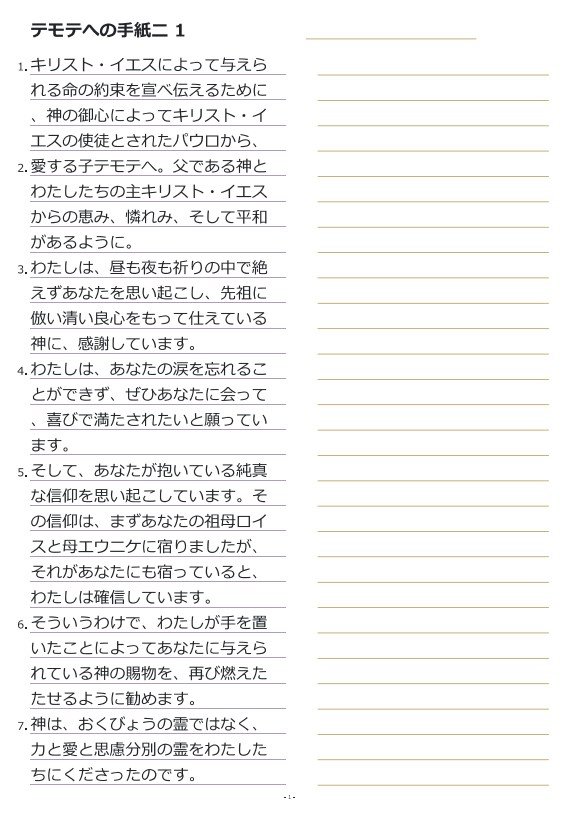 テモテへの手紙二 1
1. キリスト・イエスによって与えら
れる命の約束を宣べ伝えるために
、神の御心によってキリスト・イ
エスの使徒とされたパウロから、
2. 愛する子テモテへ。父である神と
わたしたちの主キリスト・イエス
からの恵み、憐れみ、そして平和
があるように。
3. わたしは、昼も夜も祈りの中で絶
えずあなたを思い起こし、先祖に
倣い清い良心をもって仕えている
神に、感謝しています。
4. わたしは、あなたの涙を忘れるこ
とができず、ぜひあなたに会って
、喜びで満たされたいと願ってい
ます。
5. そして、あなたが抱いている純真
な信仰を思い起こしています。そ
の信仰は、まずあなたの祖母ロイ
スと母エウニケに宿りましたが、
それがあなたにも宿っていると、
わたしは確信しています。
6. そういうわけで、わたしが手を置
いたことによってあなたに与えら
れている神の賜物を、再び燃えた
たせるように勧めます。
7. 神は、おくびょうの霊ではなく、
力と愛と思慮分別の霊をわたした
ちにくださったのです。
- 1 -